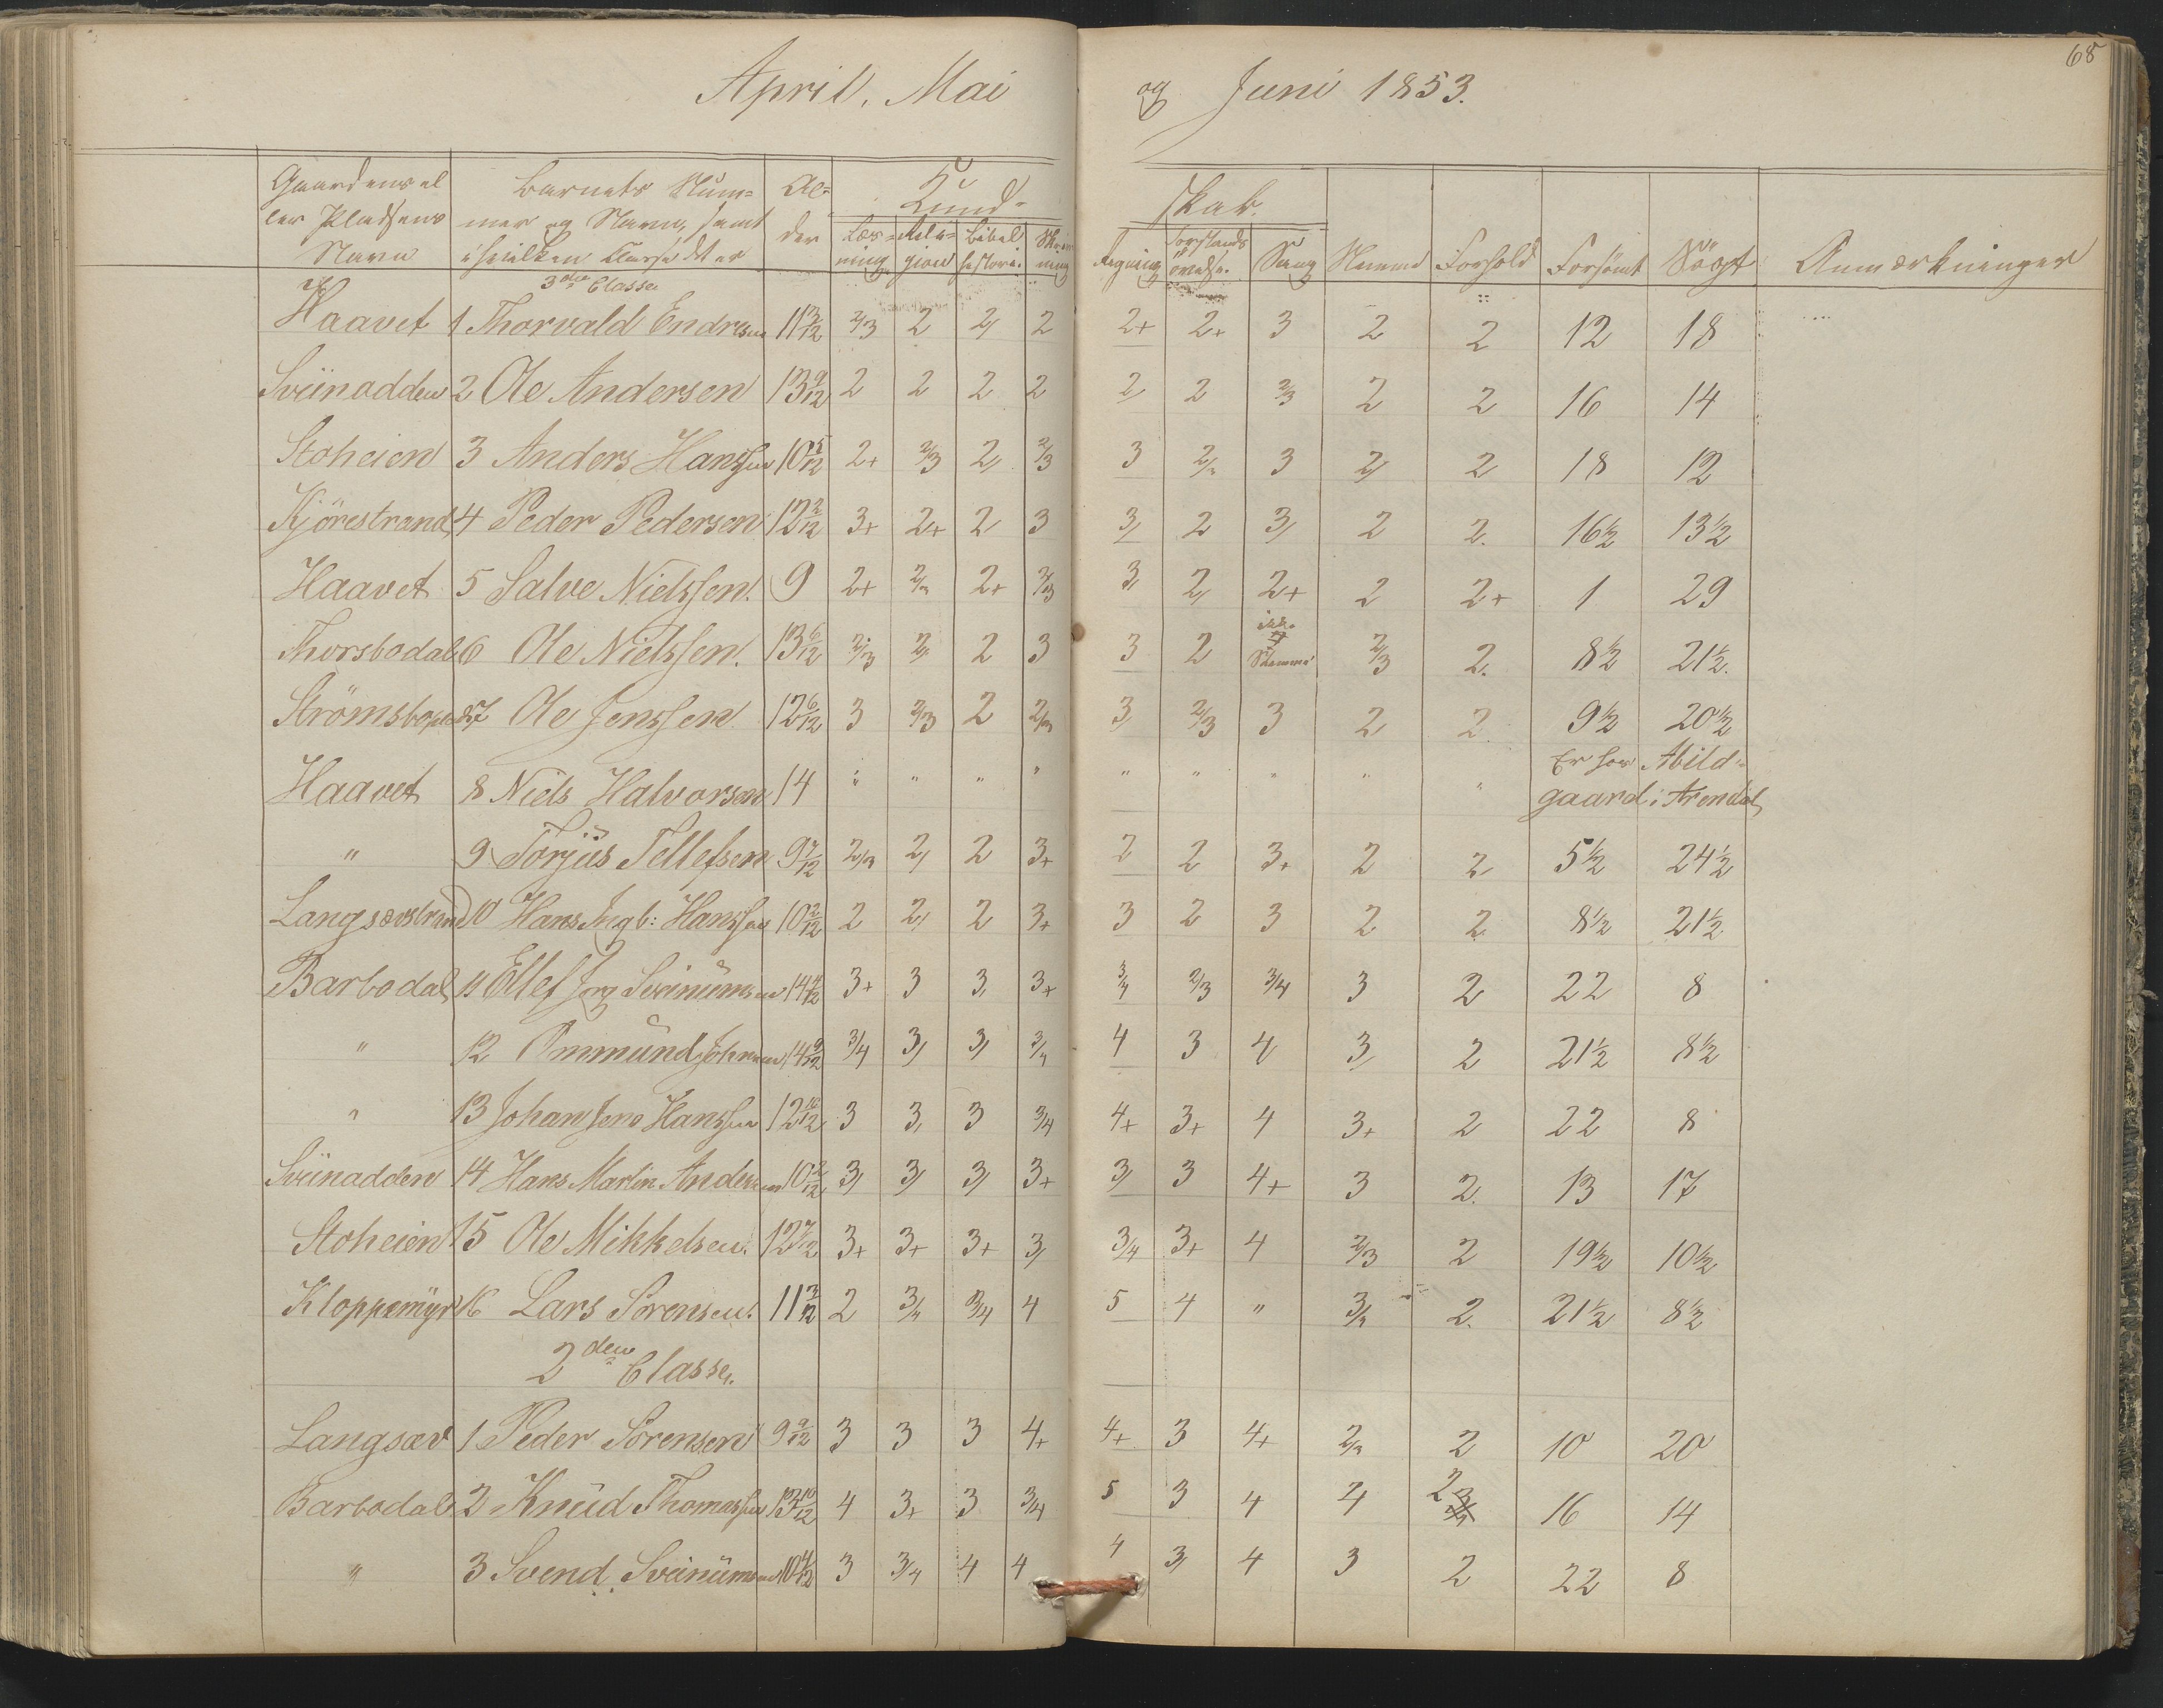 68
April, Mai og Juni 1853.
Gaardens el- Barnets Num- Al- Kund- skab.
ler Pladsens mer og Navn, samt der Læs- Reli- Bibel Skriv Forstands
Navn i hvilken Classe det er ning gion historie. ning Regning øvelse. Sang Nemme Forhold Forsömt Sögt Anmærkninger
3die Classe
Haavet 1 Thorvald Endresen 11 3/12 2/3 2 2/ 2 2+ 2+ 3 2 2 12 18
Sviinodden 2 Ole Andersen 13 9/12 2 2 2 2 2/ 2 2/3 2 2 16 14
Stoheien 3 Anders Hanssen 10 5/12 2+ 2/3 2/ 2/3 3 2/3 3 2/ 2 18 12
Kjörestrand 4 Peder Pedersen 12 2/12 3+ 2+ 2 3 3/ 2 3/ 2 2. 16½ 13½
Haavet 5 Salve Nielssen. 9 2+ 2/3 2+ 2/3 3/ 2/ 2+ 2 2+ 1 29
Thorsbodal 6 Ole Nielssen. 13 6/12 2/3 2/ 2 3 3 2 ikke Stemme 2/3 2. 8½ 21½.
Strömsbo 7 Ole Jenssen 12 6/12 3 2/3 2 2/3 3/ 2/3 3 2 2. 9½ 20½
Haavet 8 Niels Halvorsen 14 " " " " " " " " " Er hos Abild-
gaard i Arendal
" 9 Torjüs Tellefsen 9 7/12 2/3 2/ 2 3+ 2 2 3+ 2 2 5½ 24½
Langsævstrand 10 Hans Ingb: Hanssen 10 2/12 2 2/ 2 3+ 3 2 3 2 2 8½ 21½
Barbodal 11 Ellef Jörg Sveinümsen 14 4/12 3+ 3 3/ 3+ 3/4 2/3 3/4 3 2 22 8
" 12 Ommünd Johnsen 14 9/12 3/4 3/ 3/ 3/4 4 3 4/ 3/ 2 21½ 8½
" 13 Johan Jens Hanssen 12 10/12 3 3/ 3 3/4 4+ 3+ 4 3+ 2 22 8
Sviinodden 14 Hans Martin Andersen 10 2/12 3/ 3/ 3/ 3+ 3/ 3 4+ 3 2. 13 17
Stoheien 15 Ole Mikkelsen. 12 7/12 3+ 3+ 3+ 3/ 3/4 3+ 4 2/3 2 19½ 10½
Kloppemÿr 16 Lars Sörensen. 11 3/12 2 3/4 3/4 4 5 4 " 3/4 2. 21½ 8½
2den Classe.
Langsæv 1 Peder Sörensen 9 9/12 3 3 3 4+ 4+ 3 4+ 2/3 2 10 20
Barbodal 2 Knüd Thomassen 13 10/12 4 3+ 3 3/4 5 3 4 4 2 16 14
" 3 Svend Sveinümsen 10 4/12 3 3/4 4 4 4 3/ 4 3 2 22 8